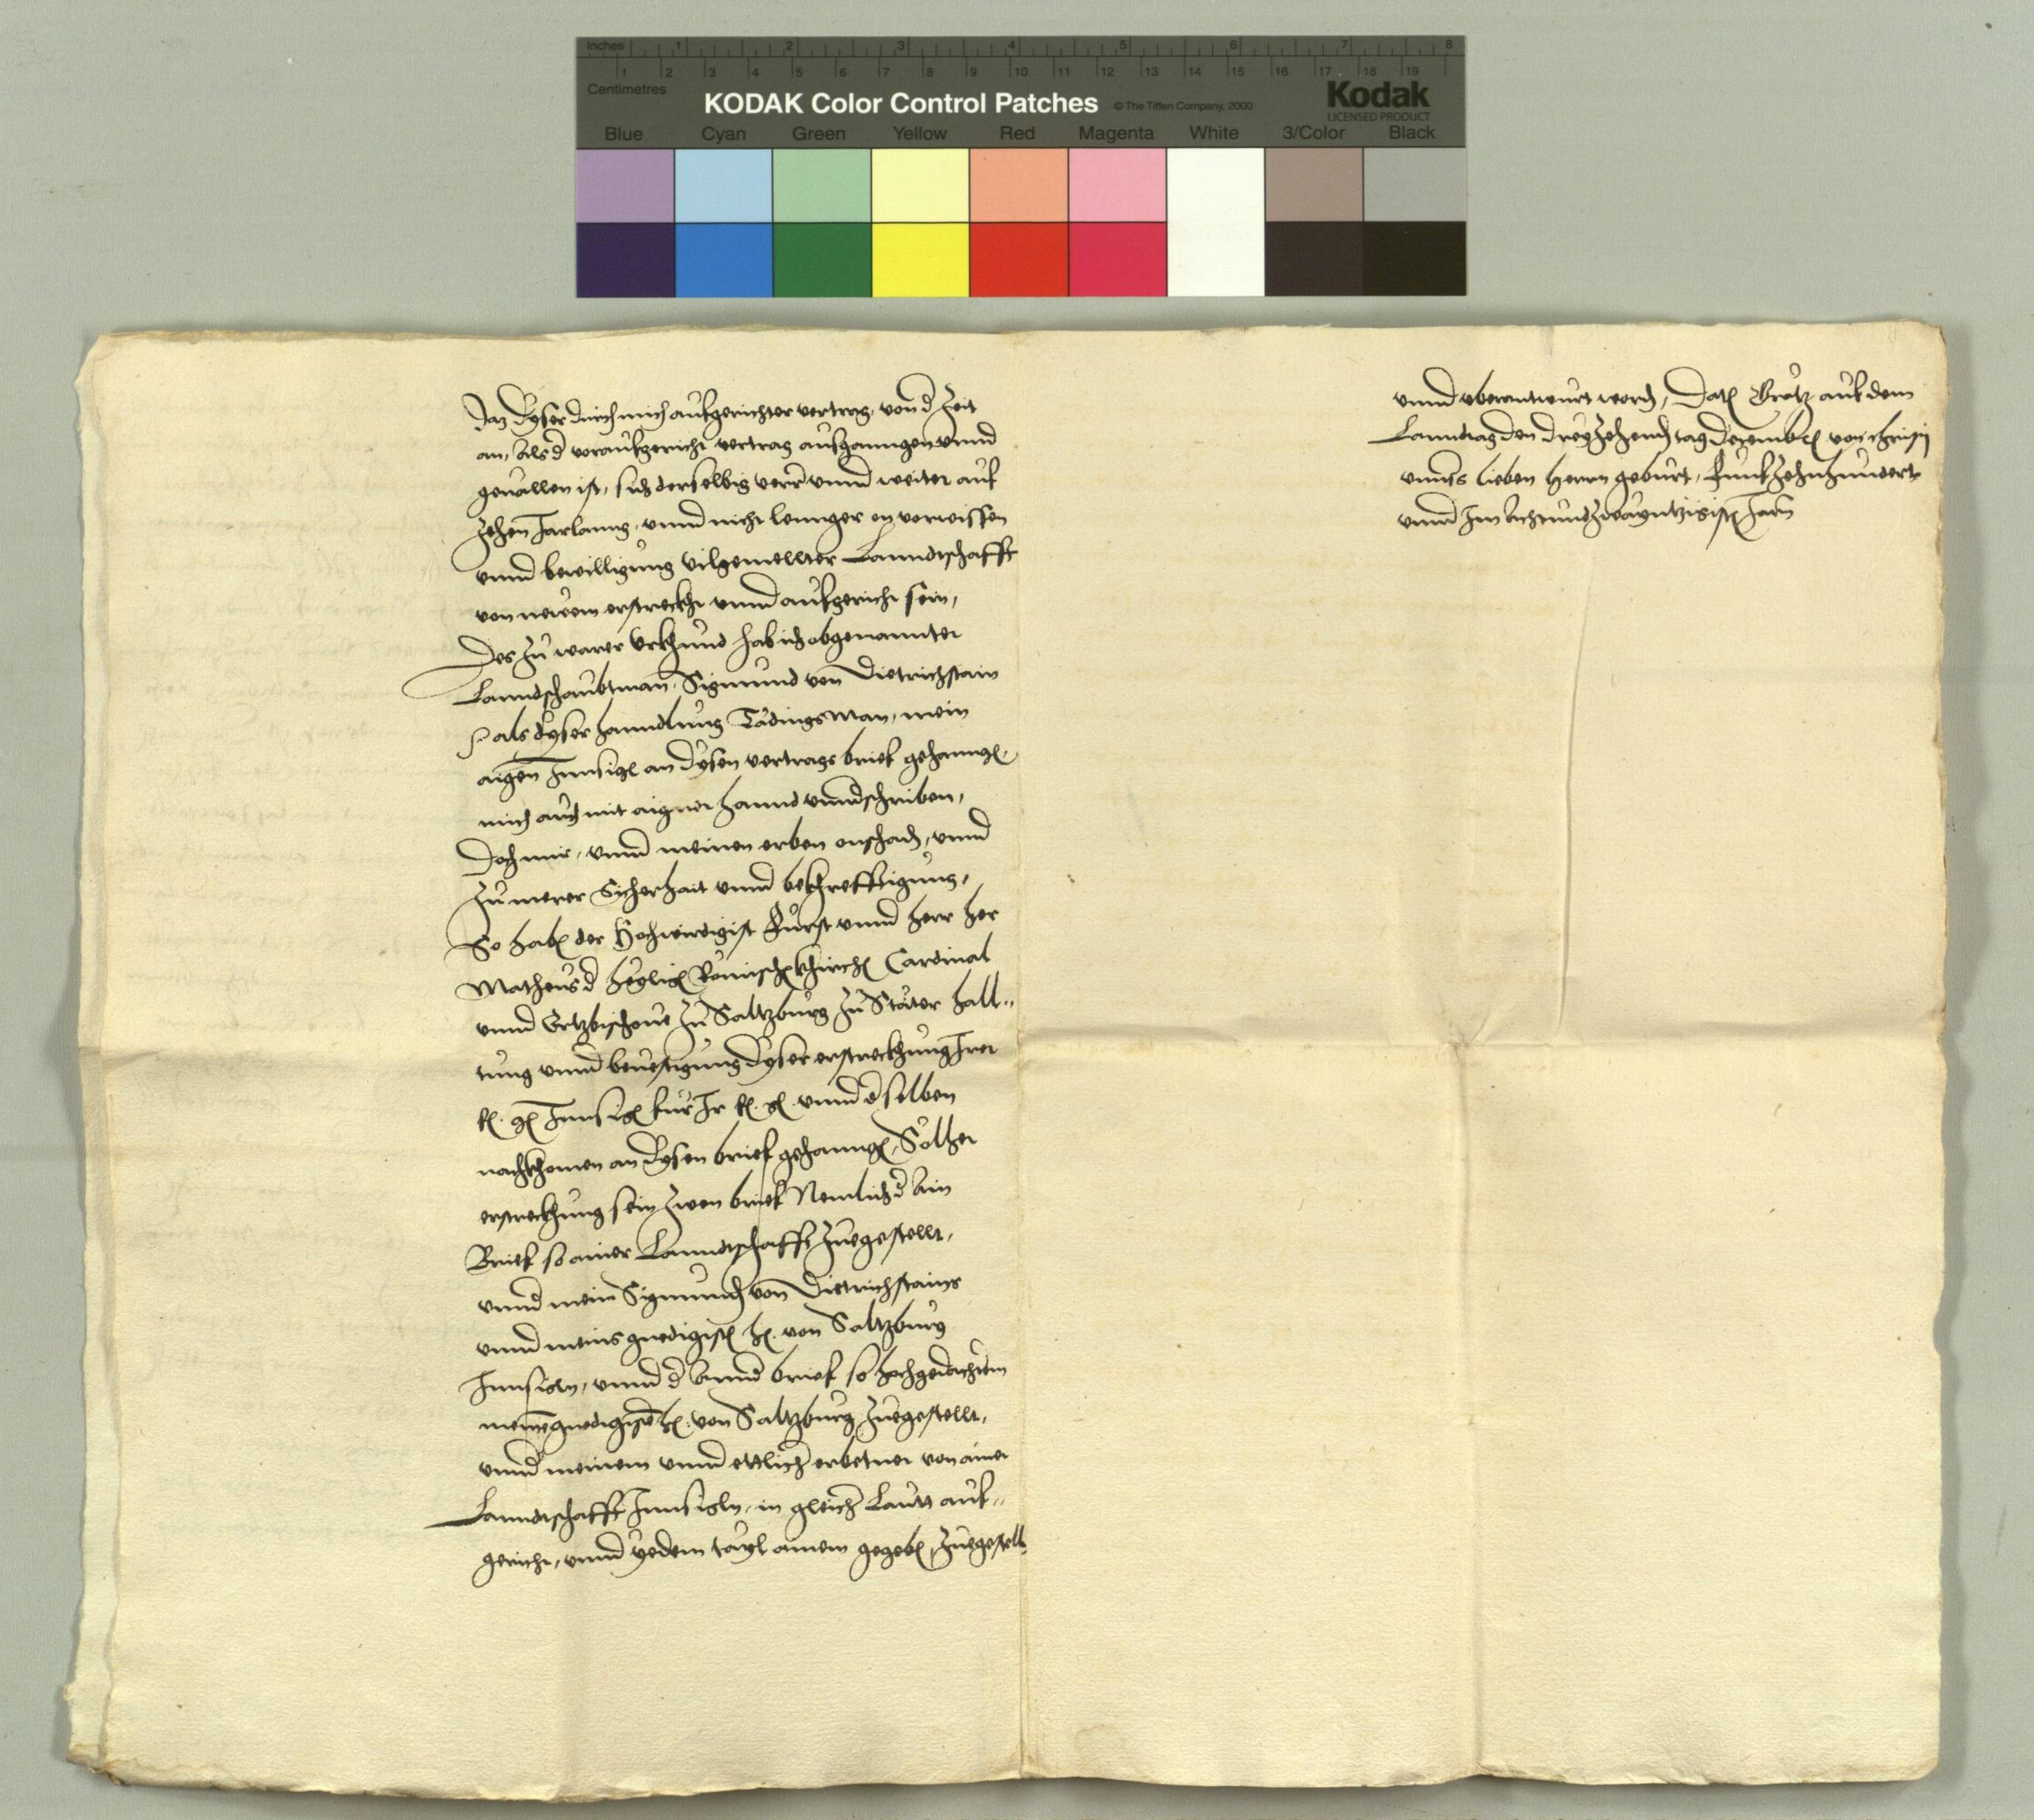 Inches 1 2 3 4 5 6 7 8
1 2 3 4 5 6 7 8 9 10 11 12 13 14 15 16 17 18 19
Centimetres
KODAK Color Control Patches © The Tiffen Company, 2000 Kodak
LICENSED PRODUCT
Blue Cyan Green Yellow Red Magenta White 3/Color Black
Daz dyser durch mich aufgerichter vertrag, von d Zeit
an, Als d voraufgericht vertrag ausganngen vnnd
geuallen ist, sich derselbig verr vnnd weiter auf
Zehen Jarlanng, vnnd nicht lennger on vorwissen
vnnd bewilligung vilgemellter Lanndtschafft
von newem erstreckht vnnd aufgericht sein,
Des Zu warer Vrkhund hab ich obgenannter
Lanndshaubtman, Sigmund von Dietrichstain
als dyser hanndlung Tädingsman, mein
aigen Innsigl an dysen vertrags brief gehanngen,
mich auch mit aigner hannd vnndschriben,
Doch mir, vnnd meinen erben onschad, vnnd
Zu merer Sicherhait vnnd bekhrefftigung,
So haben der Hochwirdigist Fürst vnnd herr her
Matheus d heyligen Römischen khirchen Cardinal
vnnd Ertzbischoue Zu Saltzburg Zu Stäter hall„
tung vnnd beuestigung dyser erstreckhung Irer
f. g. Innsigl für Ir f. g. vnnd dselben
nachkhomen an dysen brief gehanngen, Sölher
erstreckhung sein Zwen brief Nemlich d Ain
Brief so ainer Lanndtschafft Zuegestellt,
vnnd mein Sigmunden von Dietrichstains
vnnd meins gnedigisten h. von Saltzburg
Innsigln, vnnd d Annd brief so hochgedachtem
meinem gnedigisten h. von Saltzburg Zuegestellt,
vnnd meinem vnnd ettlicher erbetner von ainer
Lanndtschafft Innsigln, in gleicher Lautt auf„
gericht, vnnd yedem tayl ainem gegeben, Zuegestellt
vnnd vberantwurt worden, Daten Grätz auf dem
Lanndtag den dreyZehenden tag decembris von christi
vnnsers lieben Herrn geburt, FunfZehnhundert
vnnd Im Achtundzwayntzigisten Jarn